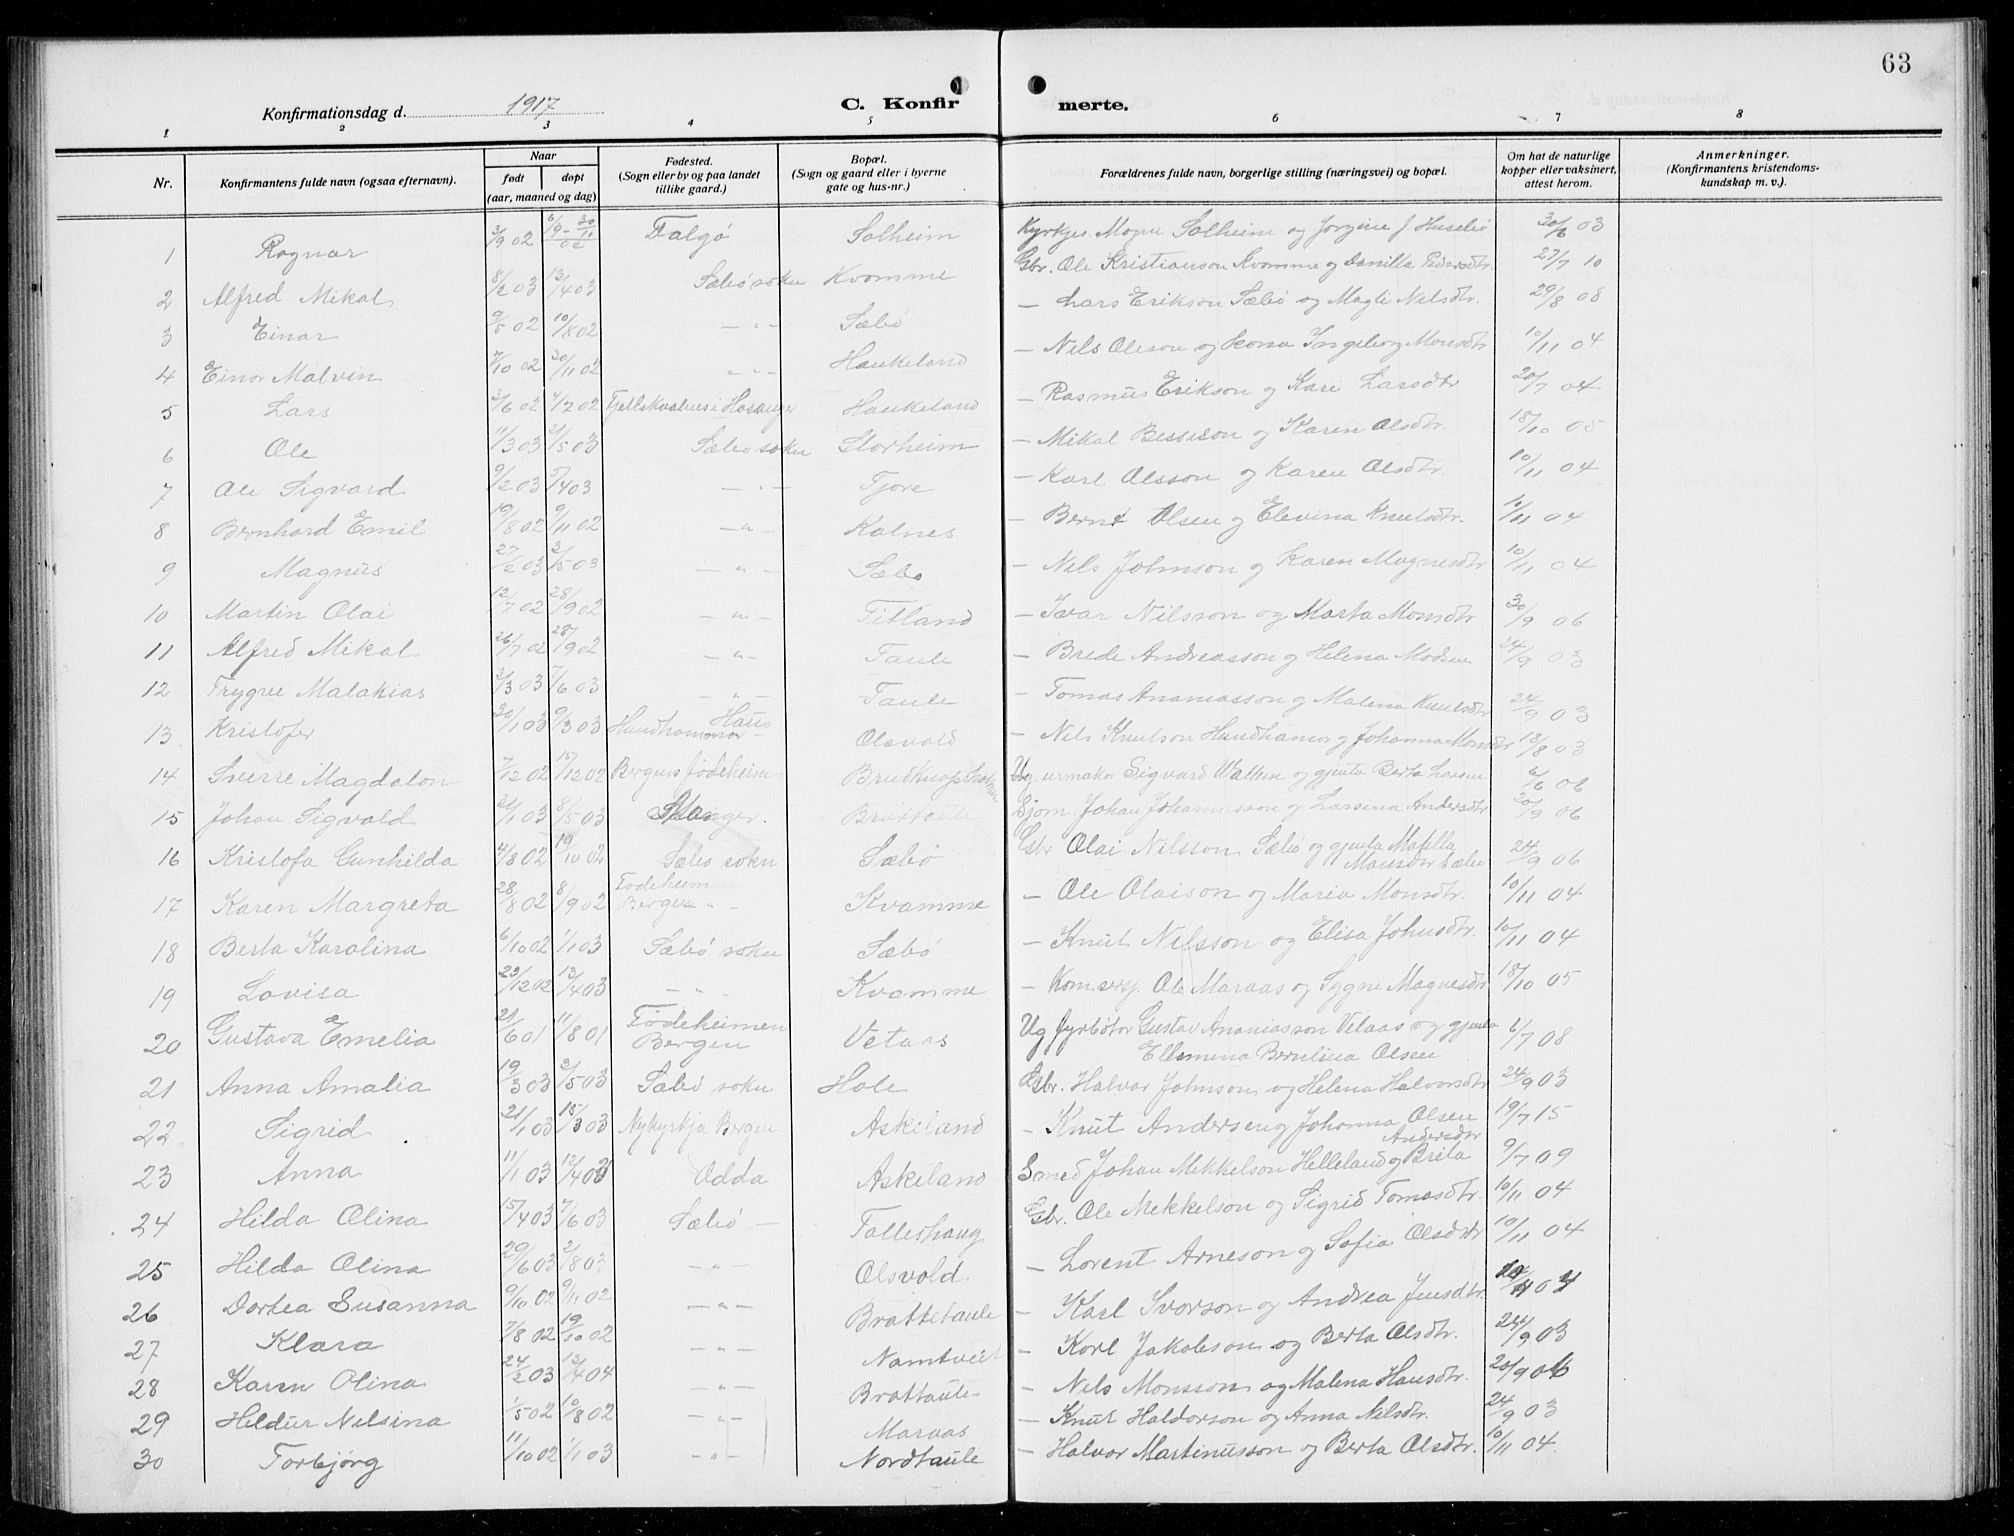 63
Konfirmationsdag d. 1917
C. Konfirmerte.
1 2 3 4 5 6 7 8
Nr.
Konfirmantens fulde navn (ogsaa efternavn).
Naar
født døpt
(aar, maaned og dag)
Fødested.
(Sogn eller by og paa landet
tillike gaard.)
Bopæl.
(Sogn og gaard eller i byerne
gate og hus-nr.)
Forældrenes fulde navn, borgerlige stilling (næringsvei) og bopæl.
Om hat de naturlige
kopper eller vaksinert,
attest herom.
Anmerkninger.
(Konfirmantens kristendoms-
kundskap m. v.)
1 Ragnar 3/9 02 Solheim Kyrkjes. Mogne Solheim og Jorgine J Husebø 30/6 03
2 Alfred Mikal 8/2 03 13/4 03 Sæbø sokn Kvamme Gbr. Ole Kristianson Kvamme og Danilla Pedersdtr. 27/7 10
3 Einar 9/5 02 10/8 02 — " — Sæbø — Lars Erikson Sæbø og Magli Nilsdtr. 29/8 08
4 Einar Malvin 7/10 02 30/11 02 — " — Haukeland — Nils Oleson og Ingeborg Monsdtr 10/11 04
5 Lars 3/6 02 4/7 02 Hosanger Haukeland — Rasmus Erikson og Kari Larsdtr 20/7 04
6 Ole 11/3 03 21/5 03 Sæbø sokn Storheim — Mikal Besseson og Karen Olsdtr. 18/10 05
7 Ole Sigvard 9/2 03 5/4 03 — " — Tjore — Karl Olsson og Karen Olsdtr. 10/11 04
8 Bernhard Emil 19/8 02 9/11 02 — " — Kalnes — Bernt Olsen og Elevina Knutsdtr. 10/11 04
9 Magnus 27/2 03 3/5 03 — " — Sæbø — Nils Johnson og Karen Magnesdtr 10/11 04
10 Martin Olai 12/7 02 28/9 02 — " — Titland — Ivar Nilsson og Marta Monsdtr 30/9 06
11 Alfred Mikal 26/7 02 28/9 02 — " — Taule — Brede Andreasson og Helena Madsen 24/9 03
12 Trygve Malakias 2/3 03 7/6 03 — " — Taule — Tomas Ananiasson og Malena Knutsdtr 24/9 03
13 Kristofer 30/1 03 9/3 03 Hundhammar Haus Olsvold — Nils Knutson Hundhamer og Johanna Monsdtr 18/8 03
14 Sverre Magdalon 7/12 02 17/12 02 Bergens fødeheim Ug. urmaker Sigvard Wallem og gjenta Berta Larsen 6/6 06
15 Johan Sigvald 21/1 03 8/5 03 Brattaule Sjøm. Johan Johannesson og Larsina Andersdtr 20/9 06
16 Kristofa Gunhilda 4/8 02 19/10 02 Sæbø sokn Sæbø Gbr Olai Nilsson Sæbø og gjenta Matilla Monsdtr Sæbø 24/9 06
17 Karen Margreta 28/8 02 8/9 02 Fødeheimen Bergen Kvamme — Ole Olaison og Maria Monsdtr. 10/11 04
18 Berta Karolina 6/10 02 1/1 03 Sæbø sokn Sæbø — Knut Nilsson og Elisa Johnsdtr. 10/11 04
19 Lovisa 29/12 02 13/4 03 — " — Kvamme — Kom.sersj. Ole Maraas og Sygni Magnesdtr 18/10 05
20 Gustava Emelia 21/6 01 11/8 01 Fødeheimen Bergen Vetaas Ug fyrbøter Gustav Ananiasson Vetaas og gjenta Ellemina Berntina Olsen 6/7 08
21 Anna Amalia 19/3 03 3/5 03 Sæbø sokn Hole Gbr. Halvar Johnson og Helena Halvorsdtr 24/9 03
22 Sigrid 21/1 03 15/3 03 Nykyrkja Bergen Askeland — Knut Andersen og Johanna Olsen 19/7 15
23 Anna 11/1 03 12/4 03 Odda Askeland Smed Johan Mekkelson Helleland og Brita Andersdtr 9/7 09
24 Hilda Olina 15/4 03 7/6 03 Sæbø — Falleshaug Gbr. Ole Mekkelson og Sigrid Tomasdtr. 10/11 04
25 Hilda Olina 29/6 03 21/8 03 — " — Olsvold — Lorent Arneson og Sofia Olsdtr 10/11 04
26 Dortea Susanna 9/10 02 9/11 02 — " — Brattetaule — Karl Ivorson og Andrea Jensdtr 10/11 04
27 Klara 7/8 02 19/10 02 — " — Namtveit — Karl Jakobson og Berta Olsdtr. 24/9 03
28 Karen Olina 24/2 03 13/4 04 — " — Brattaule — Nils Monsson og Malena Hansdtr. 20/9 06
29 Hildur Nilsina 1/5 02 10/8 02 — " — Maraas — Knut Haldorson og Anna Nilsdtr. 24/9 03
30 Torbjørg 11/10 02 1/1 03 — " — Nordtaule — Halvor Martinusson og Berta Olsdtr. 10/11 04.